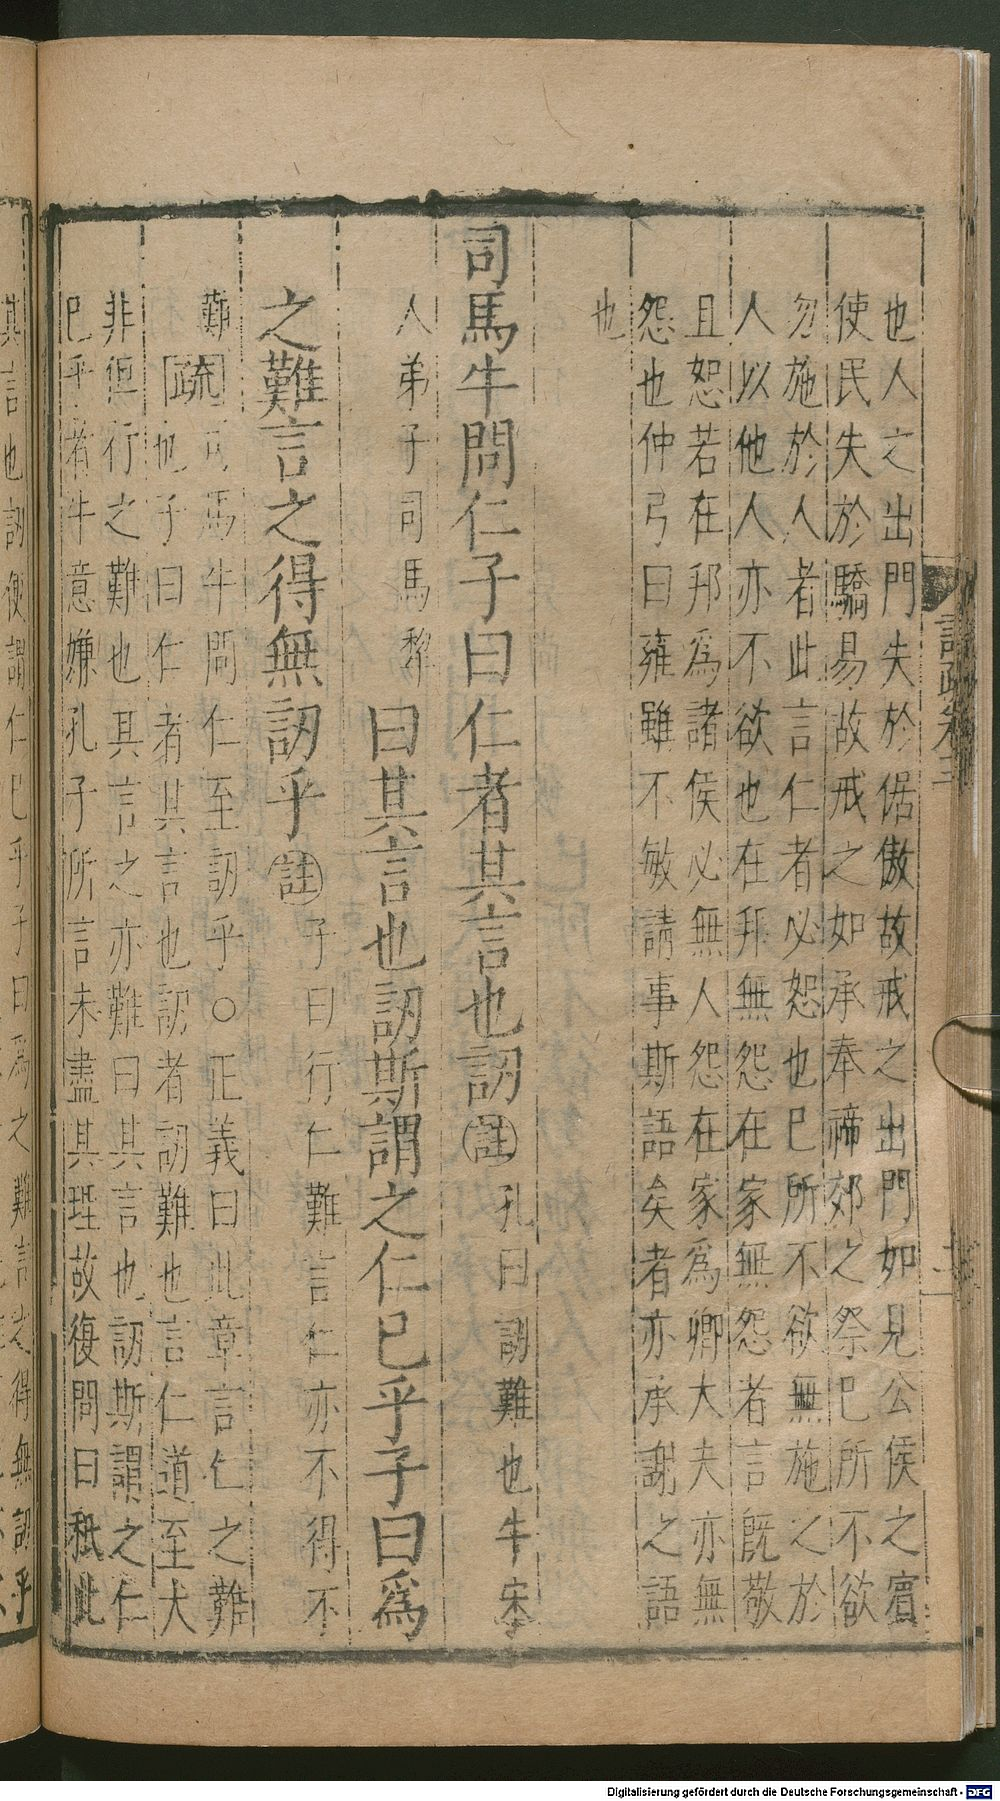 也人之出門失於倨傲故戒之出門如見公侯之賓
使民失於驕易故戒之如承奉禘郊之祭已所不欲
勿施於人者此言仁者必恕也已所不欲無施之於
人以他人亦不欲也在邦無怨在家無怨者言既敬
且恕若在邦爲諸侯必無人怨在家爲卿大夫亦無
怨也仲弓曰雍雖不敏請事斯語矣者亦承謝之語
也
司馬牛問仁子曰仁者其言也訒註孔曰訒難也牛宋
人弟子司馬犂曰其言也訒斯謂之仁已乎子曰爲
之難言之得無訒乎註子曰行仁難言仁亦不得不
難疏司馬牛問仁至訒乎○正義曰此章言仁之難
也子曰仁者其言也訒者訒難也言仁道至大
非但行之難也其言之亦難曰其言也訒斯謂之仁
已乎者牛意嫌孔子所言未盡其理故復問曰秪此
其言也訒便謂仁已乎子曰爲之難言之得無訒乎
Digitalisierung gefördert durch die Deutsche Forschungsgemeinschaft - DFG